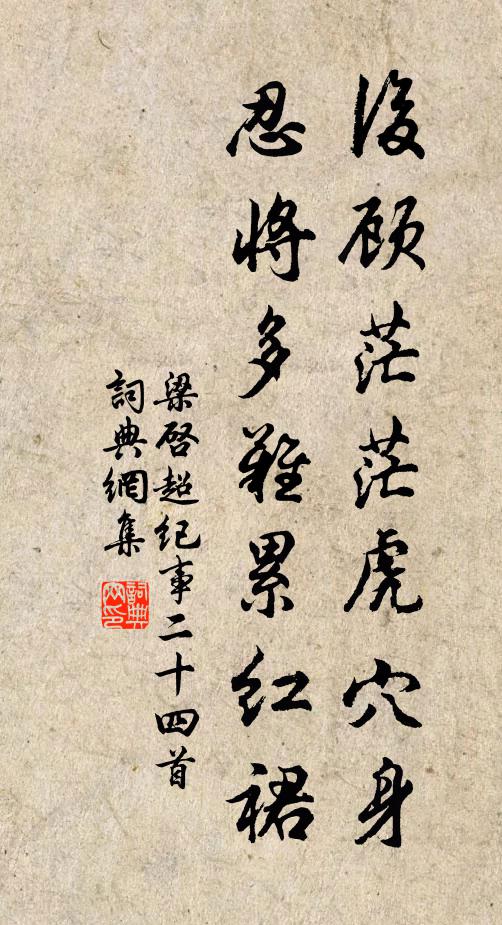 後顧茫茫虎穴身
忍將多難累紅裙
梁啓超紀事二十四首
詞典網集
詞典
网印